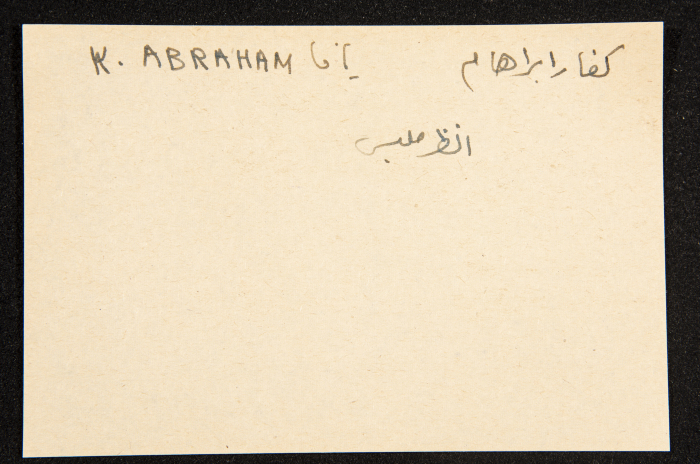 كفار ابراهام يافا K. ABRAHAM
انظر ملبس